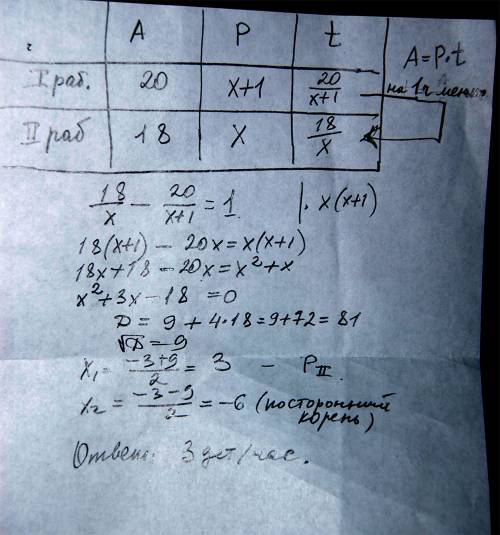 A P t
I раб. 20 x+1 20/(x+1)
II раб 18 x 18/x
A = P·t
на 1ч меньше
18/x - 20/(x+1) = 1 |· x(x+1)
18(x+1) - 20x = x(x+1)
18x+18-20x = x²+x
x²+3x-18 = 0
D = 9 + 4·18 = 9+72 = 81
√D = 9
x₁ = (-3+9)/2 = 3 - P II
x₂ = (-3-9)/2 = -6 (посторонний
корень)
Ответ: 3 дет/час.